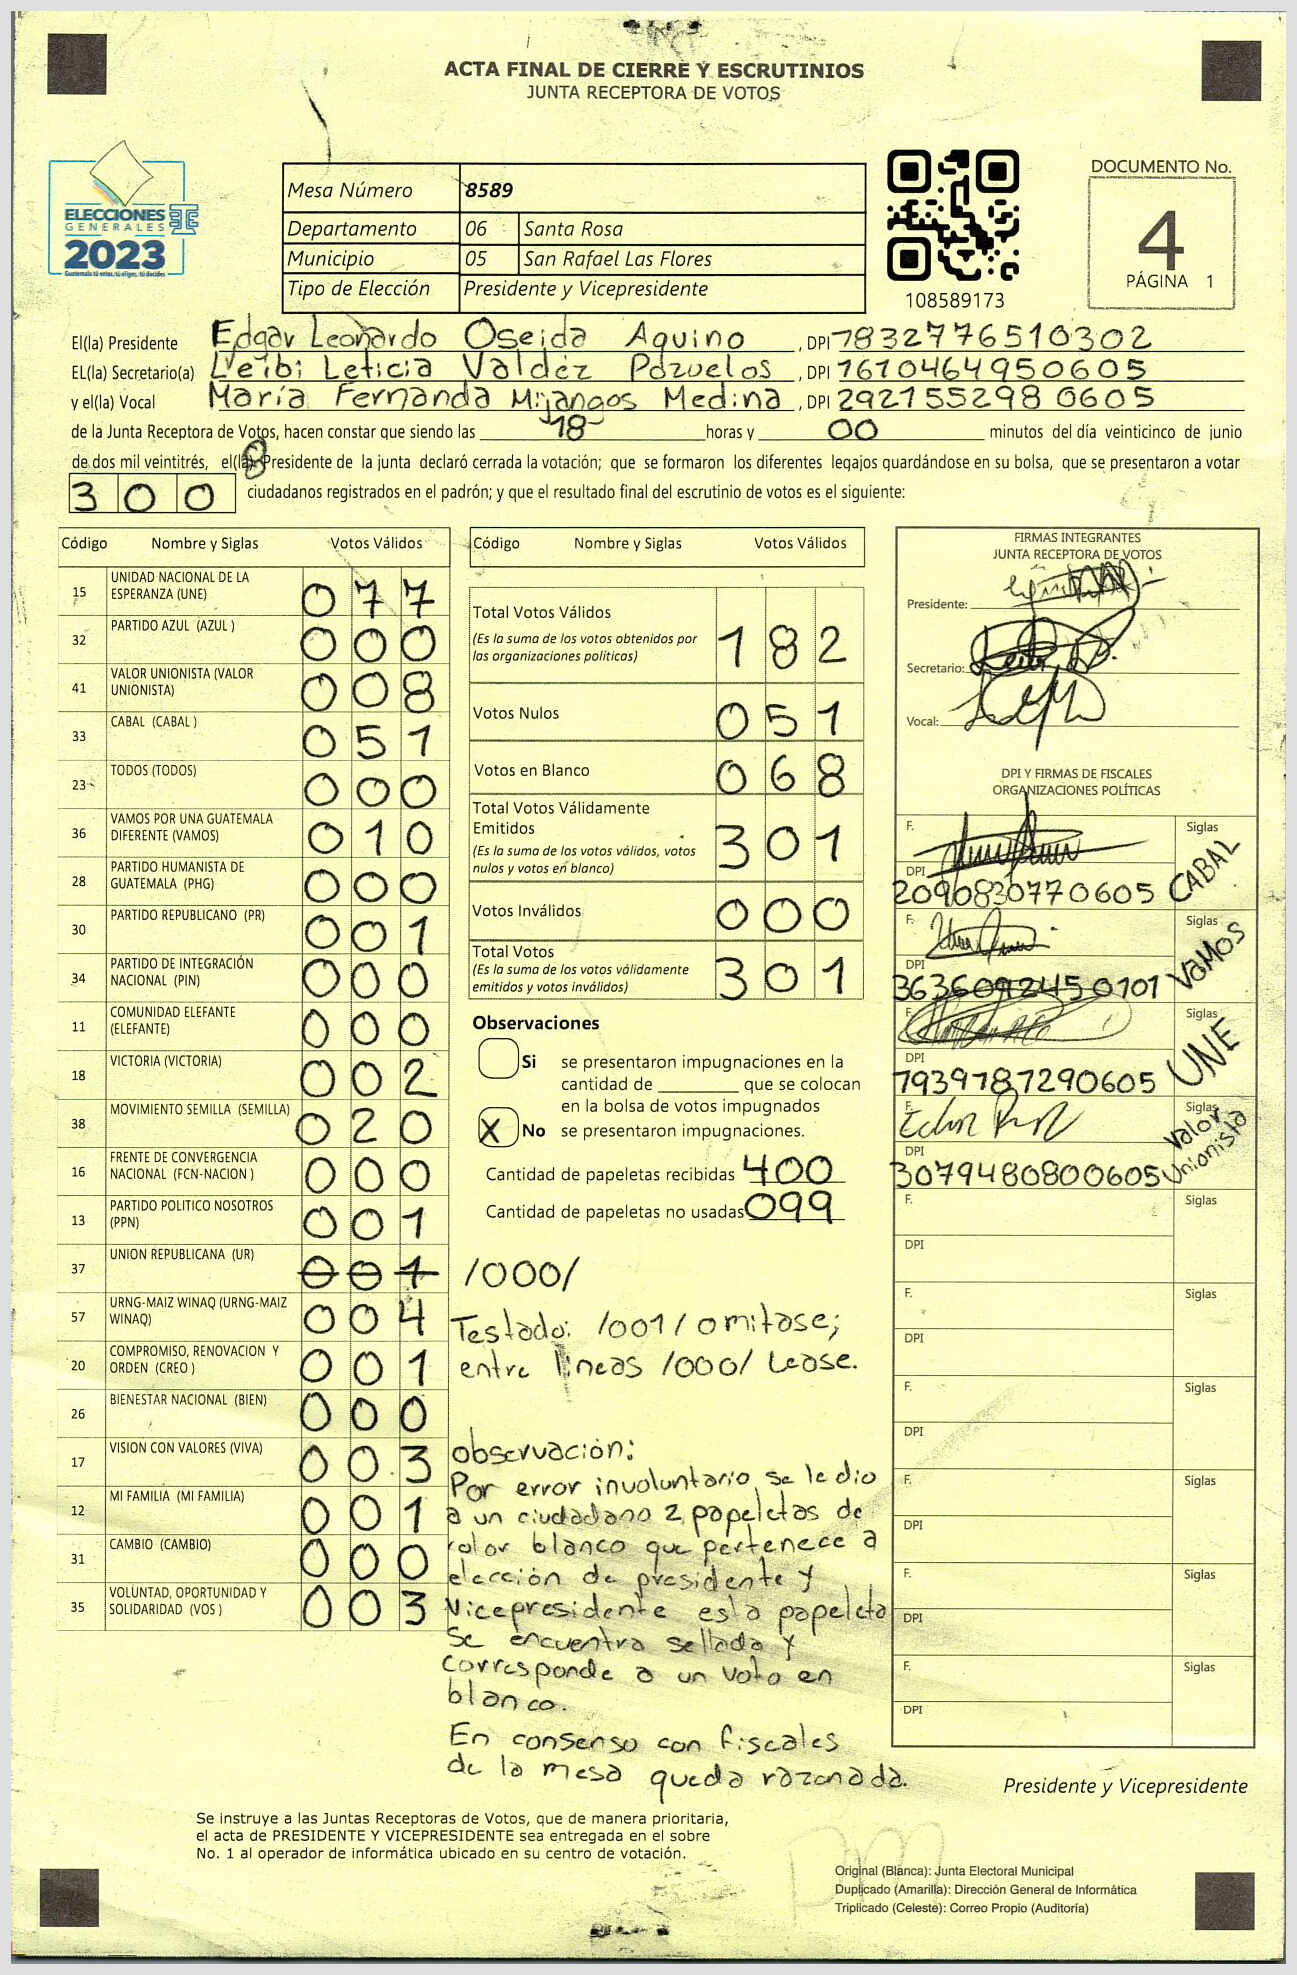 ACTA FINAL DE CIERRE Y ESCRUTINIOS
JUNTA RECEPTORA DE VOTOS
ELECCIONES
GENERALES
2023
Guatemala tú votas, tú eliges, tú decides
Mesa Número 8589
Departamento 06 Santa Rosa
Municipio 05 San Rafael Las Flores
Tipo de Elección Presidente y Vicepresidente
108589173
DOCUMENTO No.
4
PÁGINA 1
El(la) Presidente Edgar Leonardo Oseida Aquino, DPI 1832776510302
EL(la) Secretario(a) Leibi Leticia Valdéz Pozuelos, DPI 1610464950605
y el(la) Vocal María Fernanda Mijangos Medina, DPI 2921552980605
de la Junta Receptora de Votos, hacen constar que siendo las 18 horas y 00 minutos del día veinticinco de junio
de dos mil veintitrés, el(la) Presidente de la junta declaró cerrada la votación; que se formaron los diferentes legajos guardándose en su bolsa, que se presentaron a votar
300 ciudadanos registrados en el padrón; y que el resultado final del escrutinio de votos es el siguiente:
Código Nombre y Siglas Votos Válidos
15 UNIDAD NACIONAL DE LA ESPERANZA (UNE) 077
32 PARTIDO AZUL (AZUL ) 000
41 VALOR UNIONISTA (VALOR UNIONISTA) 008
33 CABAL (CABAL ) 051
23 TODOS (TODOS) 000
36 VAMOS POR UNA GUATEMALA DIFERENTE (VAMOS) 010
28 PARTIDO HUMANISTA DE GUATEMALA (PHG) 000
30 PARTIDO REPUBLICANO (PR) 001
34 PARTIDO DE INTEGRACIÓN NACIONAL (PIN) 000
11 COMUNIDAD ELEFANTE (ELEFANTE) 000
18 VICTORIA (VICTORIA) 002
38 MOVIMIENTO SEMILLA (SEMILLA) 020
16 FRENTE DE CONVERGENCIA NACIONAL (FCN-NACION ) 000
13 PARTIDO POLITICO NOSOTROS (PPN) 001
37 UNION REPUBLICANA (UR) 001 /000/
57 URNG-MAIZ WINAQ (URNG-MAIZ WINAQ) 004
20 COMPROMISO, RENOVACION Y ORDEN (CREO ) 001
26 BIENESTAR NACIONAL (BIEN) 000
17 VISION CON VALORES (VIVA) 003
12 MI FAMILIA (MI FAMILIA) 001
31 CAMBIO (CAMBIO) 000
35 VOLUNTAD, OPORTUNIDAD Y SOLIDARIDAD (VOS ) 003
Código Nombre y Siglas Votos Válidos
Total Votos Válidos 182
(Es la suma de los votos obtenidos por
las organizaciones políticas)
Votos Nulos 051
Votos en Blanco 068
Total Votos Válidamente
Emitidos 301
(Es la suma de los votos válidos, votos
nulos y votos en blanco)
Votos Inválidos 000
Total Votos 301
(Es la suma de los votos válidamente
emitidos y votos inválidos)
Observaciones
Si se presentaron impugnaciones en la
cantidad de ________ que se colocan
en la bolsa de votos impugnados
X No se presentaron impugnaciones.
Cantidad de papeletas recibidas 400
Cantidad de papeletas no usadas 099
Testado: /001/ omitase;
entre lineas /000/ Lease.
observación:
Por error involuntario se le dio
a un ciudadano 2 papeletas de
color blanco que pertenece a
elección de presidente y
Vicepresidente esta papeleta
se encuentra sellada y
corresponde a un voto en
blanco.
En consenso con fiscales
de la mesa queda razonada.
FIRMAS INTEGRANTES
JUNTA RECEPTORA DE VOTOS
Presidente:
Secretario:
Vocal:
DPI Y FIRMAS DE FISCALES
ORGANIZACIONES POLÍTICAS
F. Siglas CABAL
DPI 2090830770605
F. Siglas VAMOS
DPI 3636092450101
F. Siglas UNE
DPI 1939787290605
F. Siglas Valor Unionista
DPI 3079480800605
F. Siglas
DPI
F. Siglas
DPI
F. Siglas
DPI
F. Siglas
DPI
F. Siglas
DPI
F. Siglas
DPI
Presidente y Vicepresidente
Se instruye a las Juntas Receptoras de Votos, que de manera prioritaria,
el acta de PRESIDENTE Y VICEPRESIDENTE sea entregada en el sobre
No. 1 al operador de informática ubicado en su centro de votación.
Original (Blanca): Junta Electoral Municipal
Duplicado (Amarilla): Dirección General de Informática
Triplicado (Celeste): Correo Propio (Auditoría)